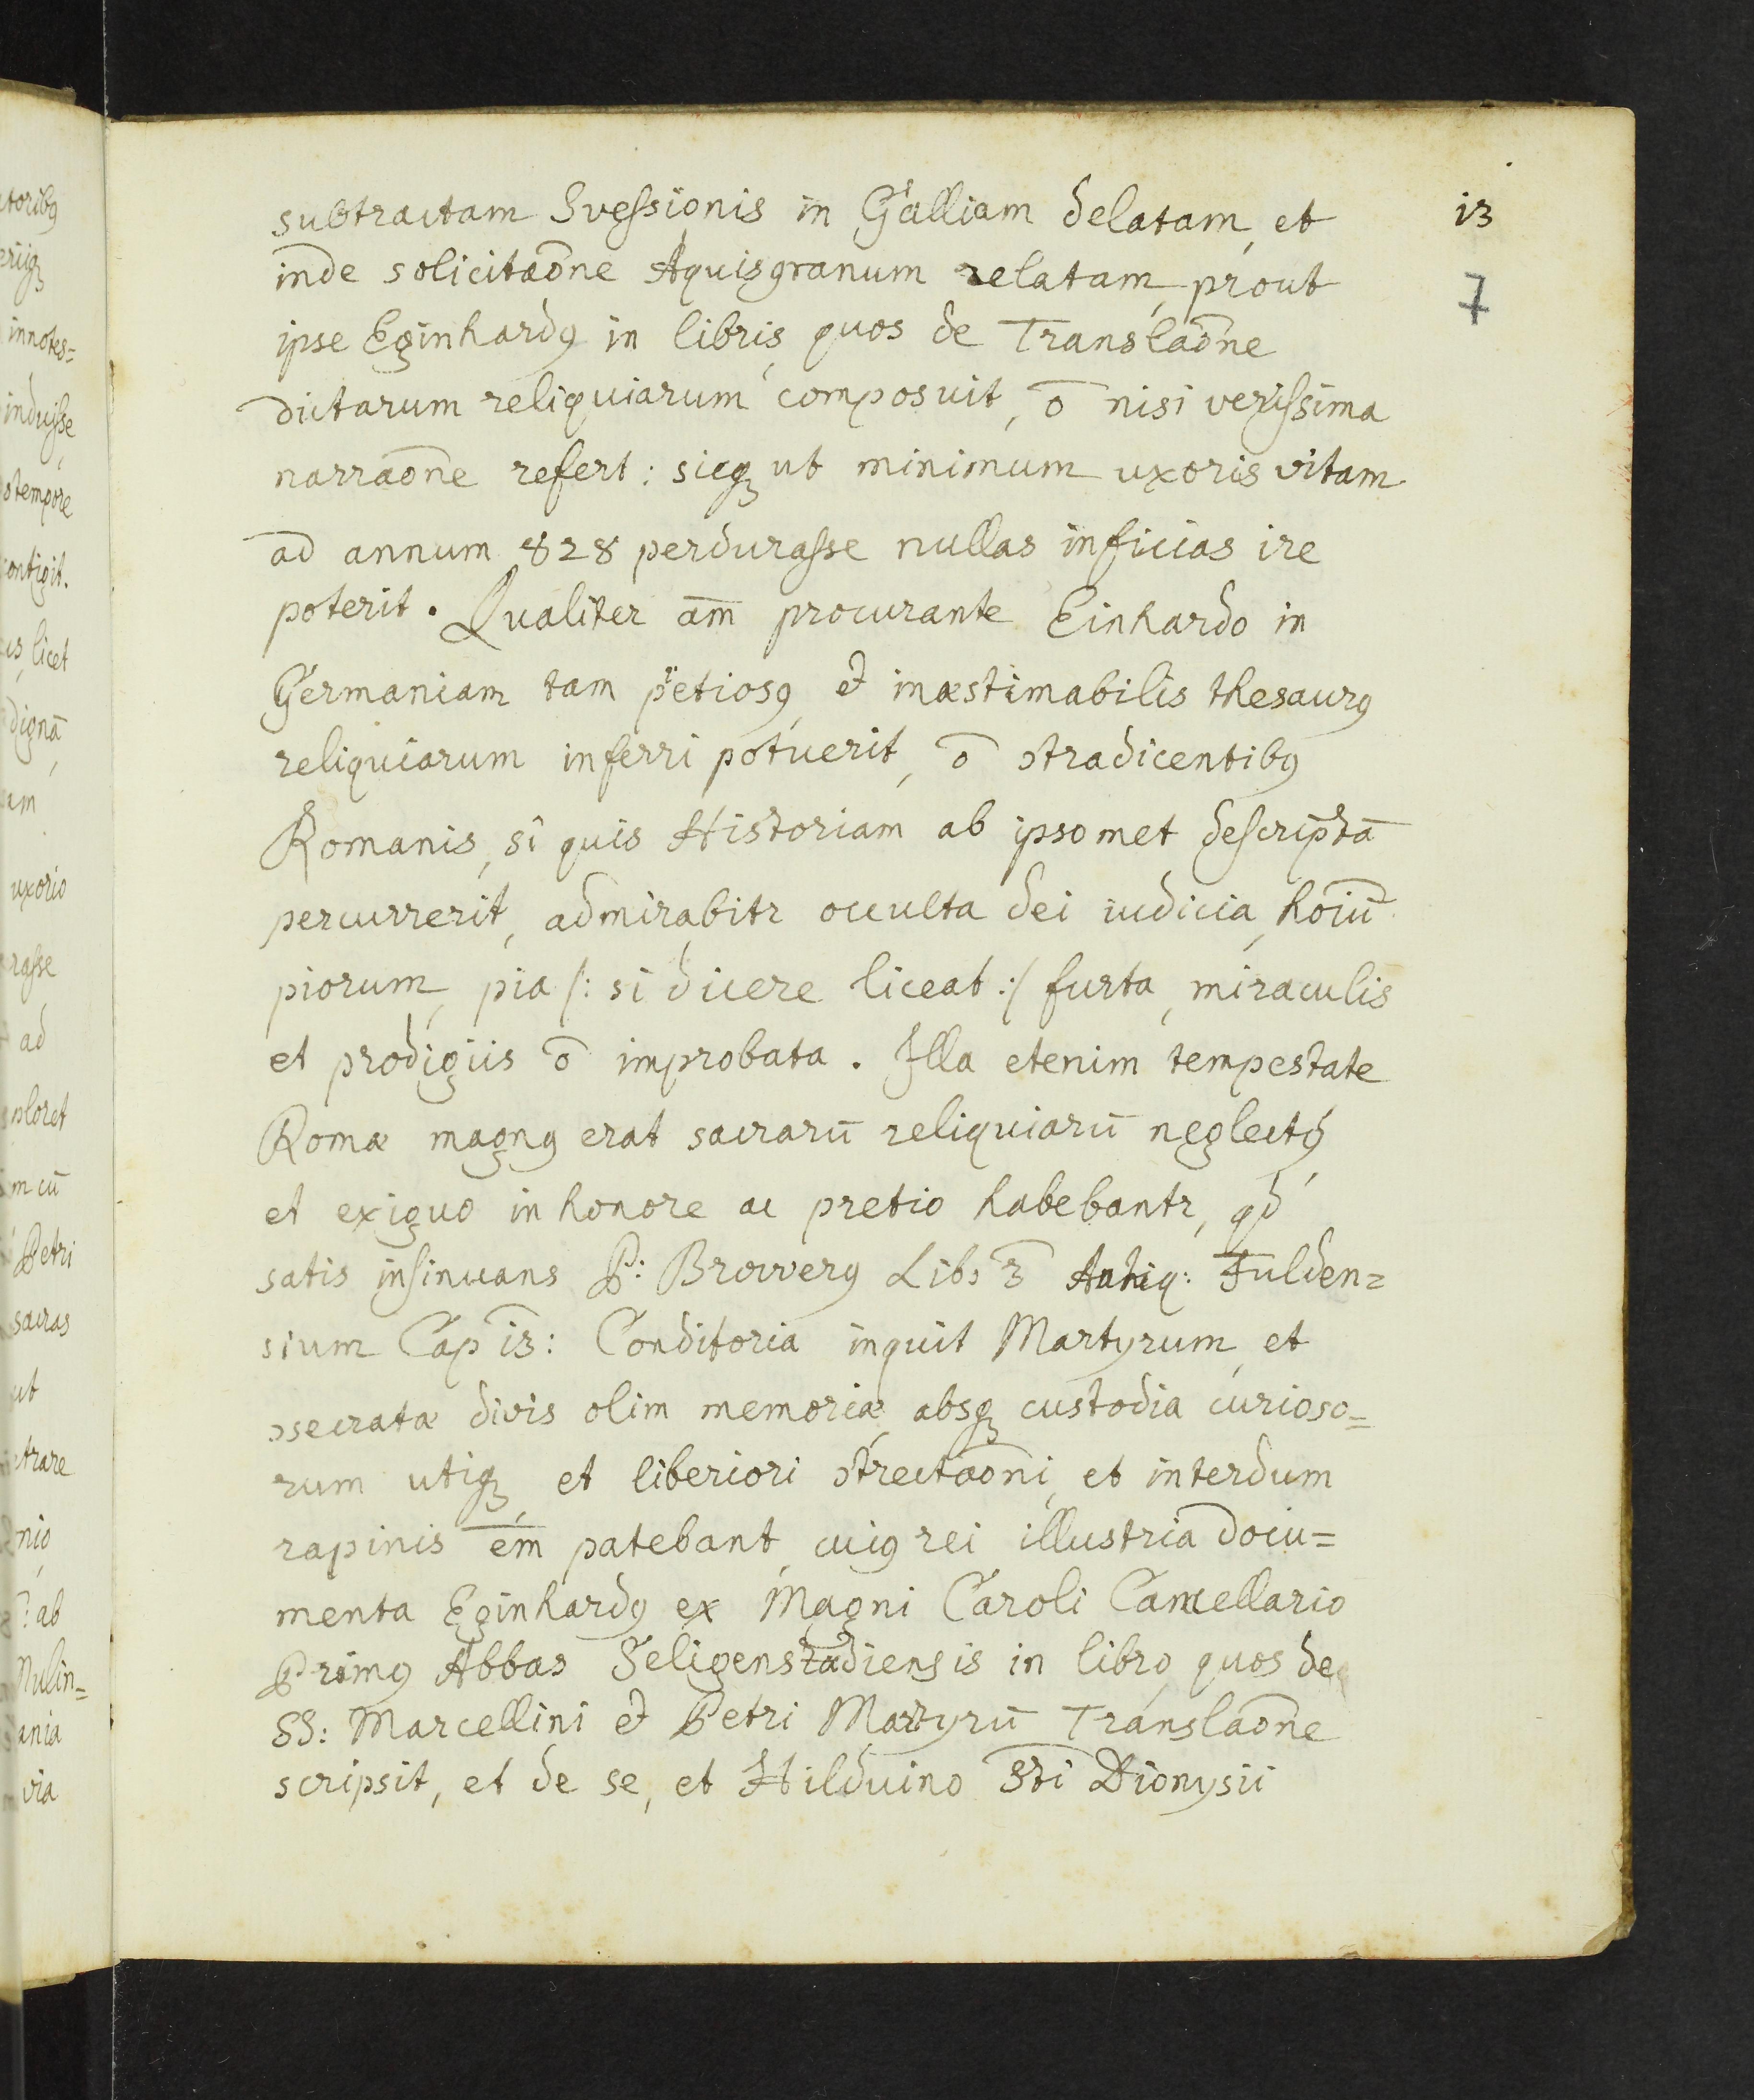 subtractam Svessionis in Galliam delatam, et
13
inde solicitaōne Aquisgranum relatam, prout
7
ipse Eginhardꝰ in libris, quos de Translaōne
dictarum reliquiarum composuit, ō nisi verissima
narraōne refert: sicqꝫ ut minimum uxoris vitam
ad annum 828 perdurasse nullas inficias ire
poterit. Qualiter am̄ procurante Einhardo in
Germaniam tam p̈etiosꝰ, et inæstimabilis thesaurꝰ
reliquiarum inferri potuerit, ō ↄtradicentibꝰ
Romanis, si quis Historiam ab ipsomet descriptā
percurrerit, admirabitr occulta dei iudicia, hoīū
piorum, pia /: si dicere liceat :/ furta, miraculis
et prodigiis ō improbata. Illa etenim tempestate
Romæ magnꝰ erat sacrarū reliquiarū neglectꝰ,
et exiguo in honore ac pretio habebantr, qd
satis insinuans P: Browerꝰ Lib: 3 Antiq: Fulden=
sium Cap 13: Conditoria inquit Martyrum, et
ↄsecratæ divis olim memoriæ, absqꝫ custodia curioso=
rum utiqꝫ, et liberiori ↄtrectaōni, et interdum
rapinis em̄ patebant, cuiꝰ rei illustria docu=
menta Eginhardꝰ ex Magni Caroli Cancellario
Primꝰ Abbas Seligenstadiensis in libro, quos de
SS: Marcellini et Petri Martyrū Translaōne
scripsit, et de se, et Hilduino S̄ti Dionysii
toribꝰ
innotes=
induisse
tempore
contigit.
licet
dignā
am
uxorio
rasse
ad
ploret
m cū
Petri
sacras
ut
trare
nio
ab
ania
via